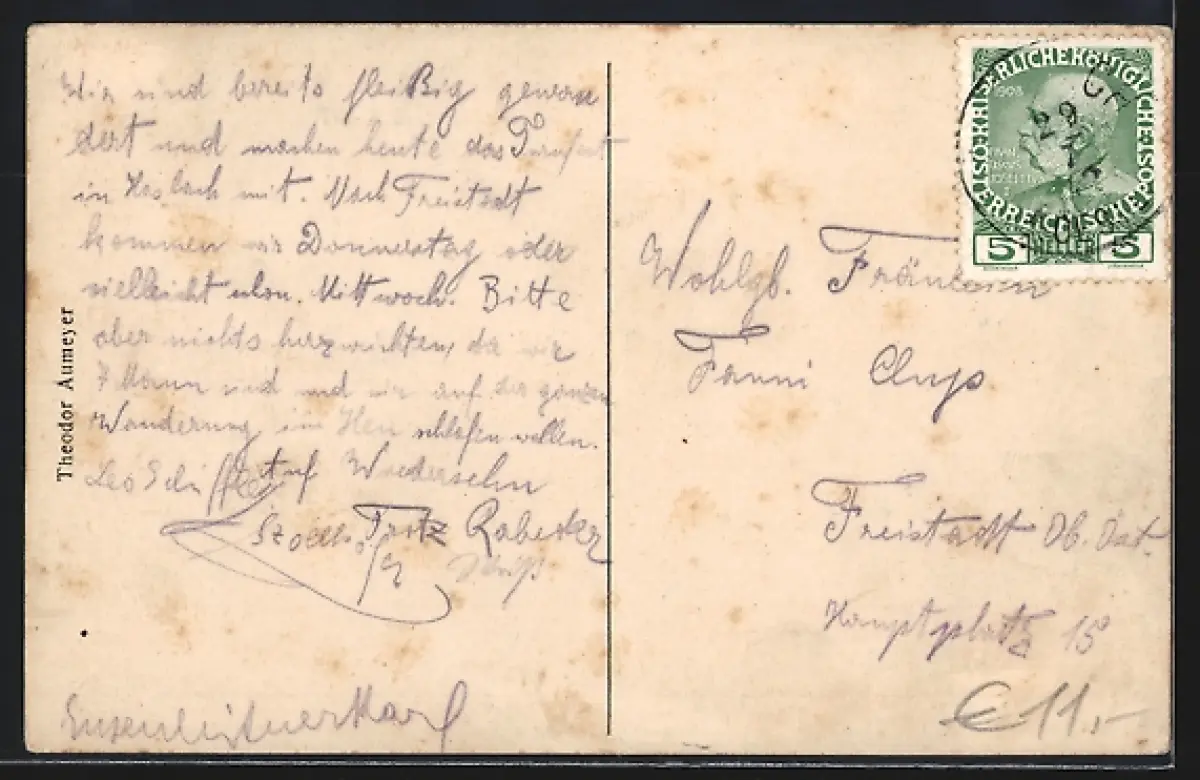 Wir sind bereits fleißig gewan
dert und machen heute das Turnfest
in Haslach mit. Nach Freistadt
kommen wir Donnerstag oder
vielleicht schon Mittwoch. Bitte
aber nichts herzurichten, da wir
7 Mann sind und wir auf der ganzen
Wanderung im Heu schlafen wollen.
Auf Wiedersehn
Leo
Fritz
Karl
Theodor Aumeyer
KAISERLICHE KÖNIGLICHE ÖSTERREICHISCHE POST
1908
5 HELLER 5
Wohlgb. Fräulein
Fanni
Freistadt Ob. Öst.
Hauptplatz 15
€ 11,-